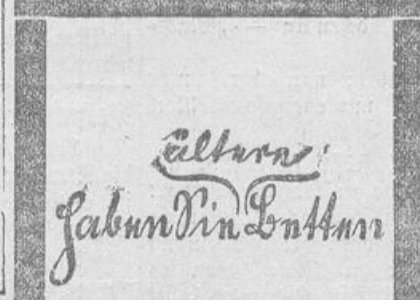 ältere
Haben Sie Betten